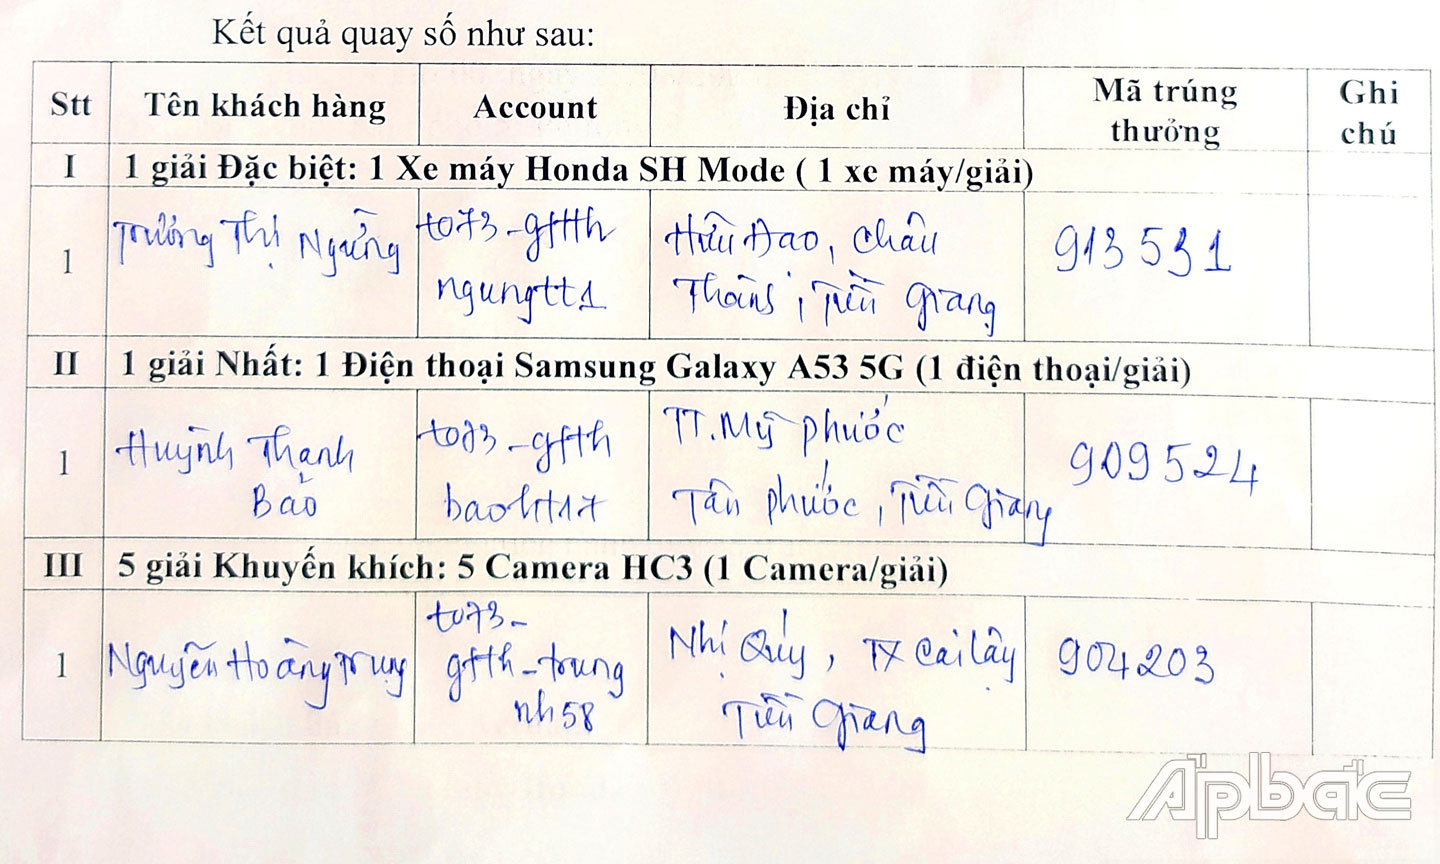 Kết quả quay số như sau:
Stt Tên khách hàng Account Địa chỉ Mã trúng thưởng Ghi chú
I 1 giải Đặc biệt: 1 Xe máy Honda SH Mode ( 1 xe máy/giải)
1 Trương Thị Ngưng t073-gftth Hữu Đạo, Châu 913531
ngungtt1 Thành, Tiền Giang
II 1 giải Nhất: 1 Điện thoại Samsung Galaxy A53 5G (1 điện thoại/giải)
1 Huỳnh Thanh t073-gftth TT.Mỹ phước 909524
Bảo baoht17 Tân phước, Tiền Giang
III 5 giải Khuyến khích: 5 Camera HC3 (1 Camera/giải)
1 Nguyễn Hoàng Trung t073- Nhị Quý, TX Cai Lậy 904203
gftth-trung Tiền Giang
nh58
Apbac